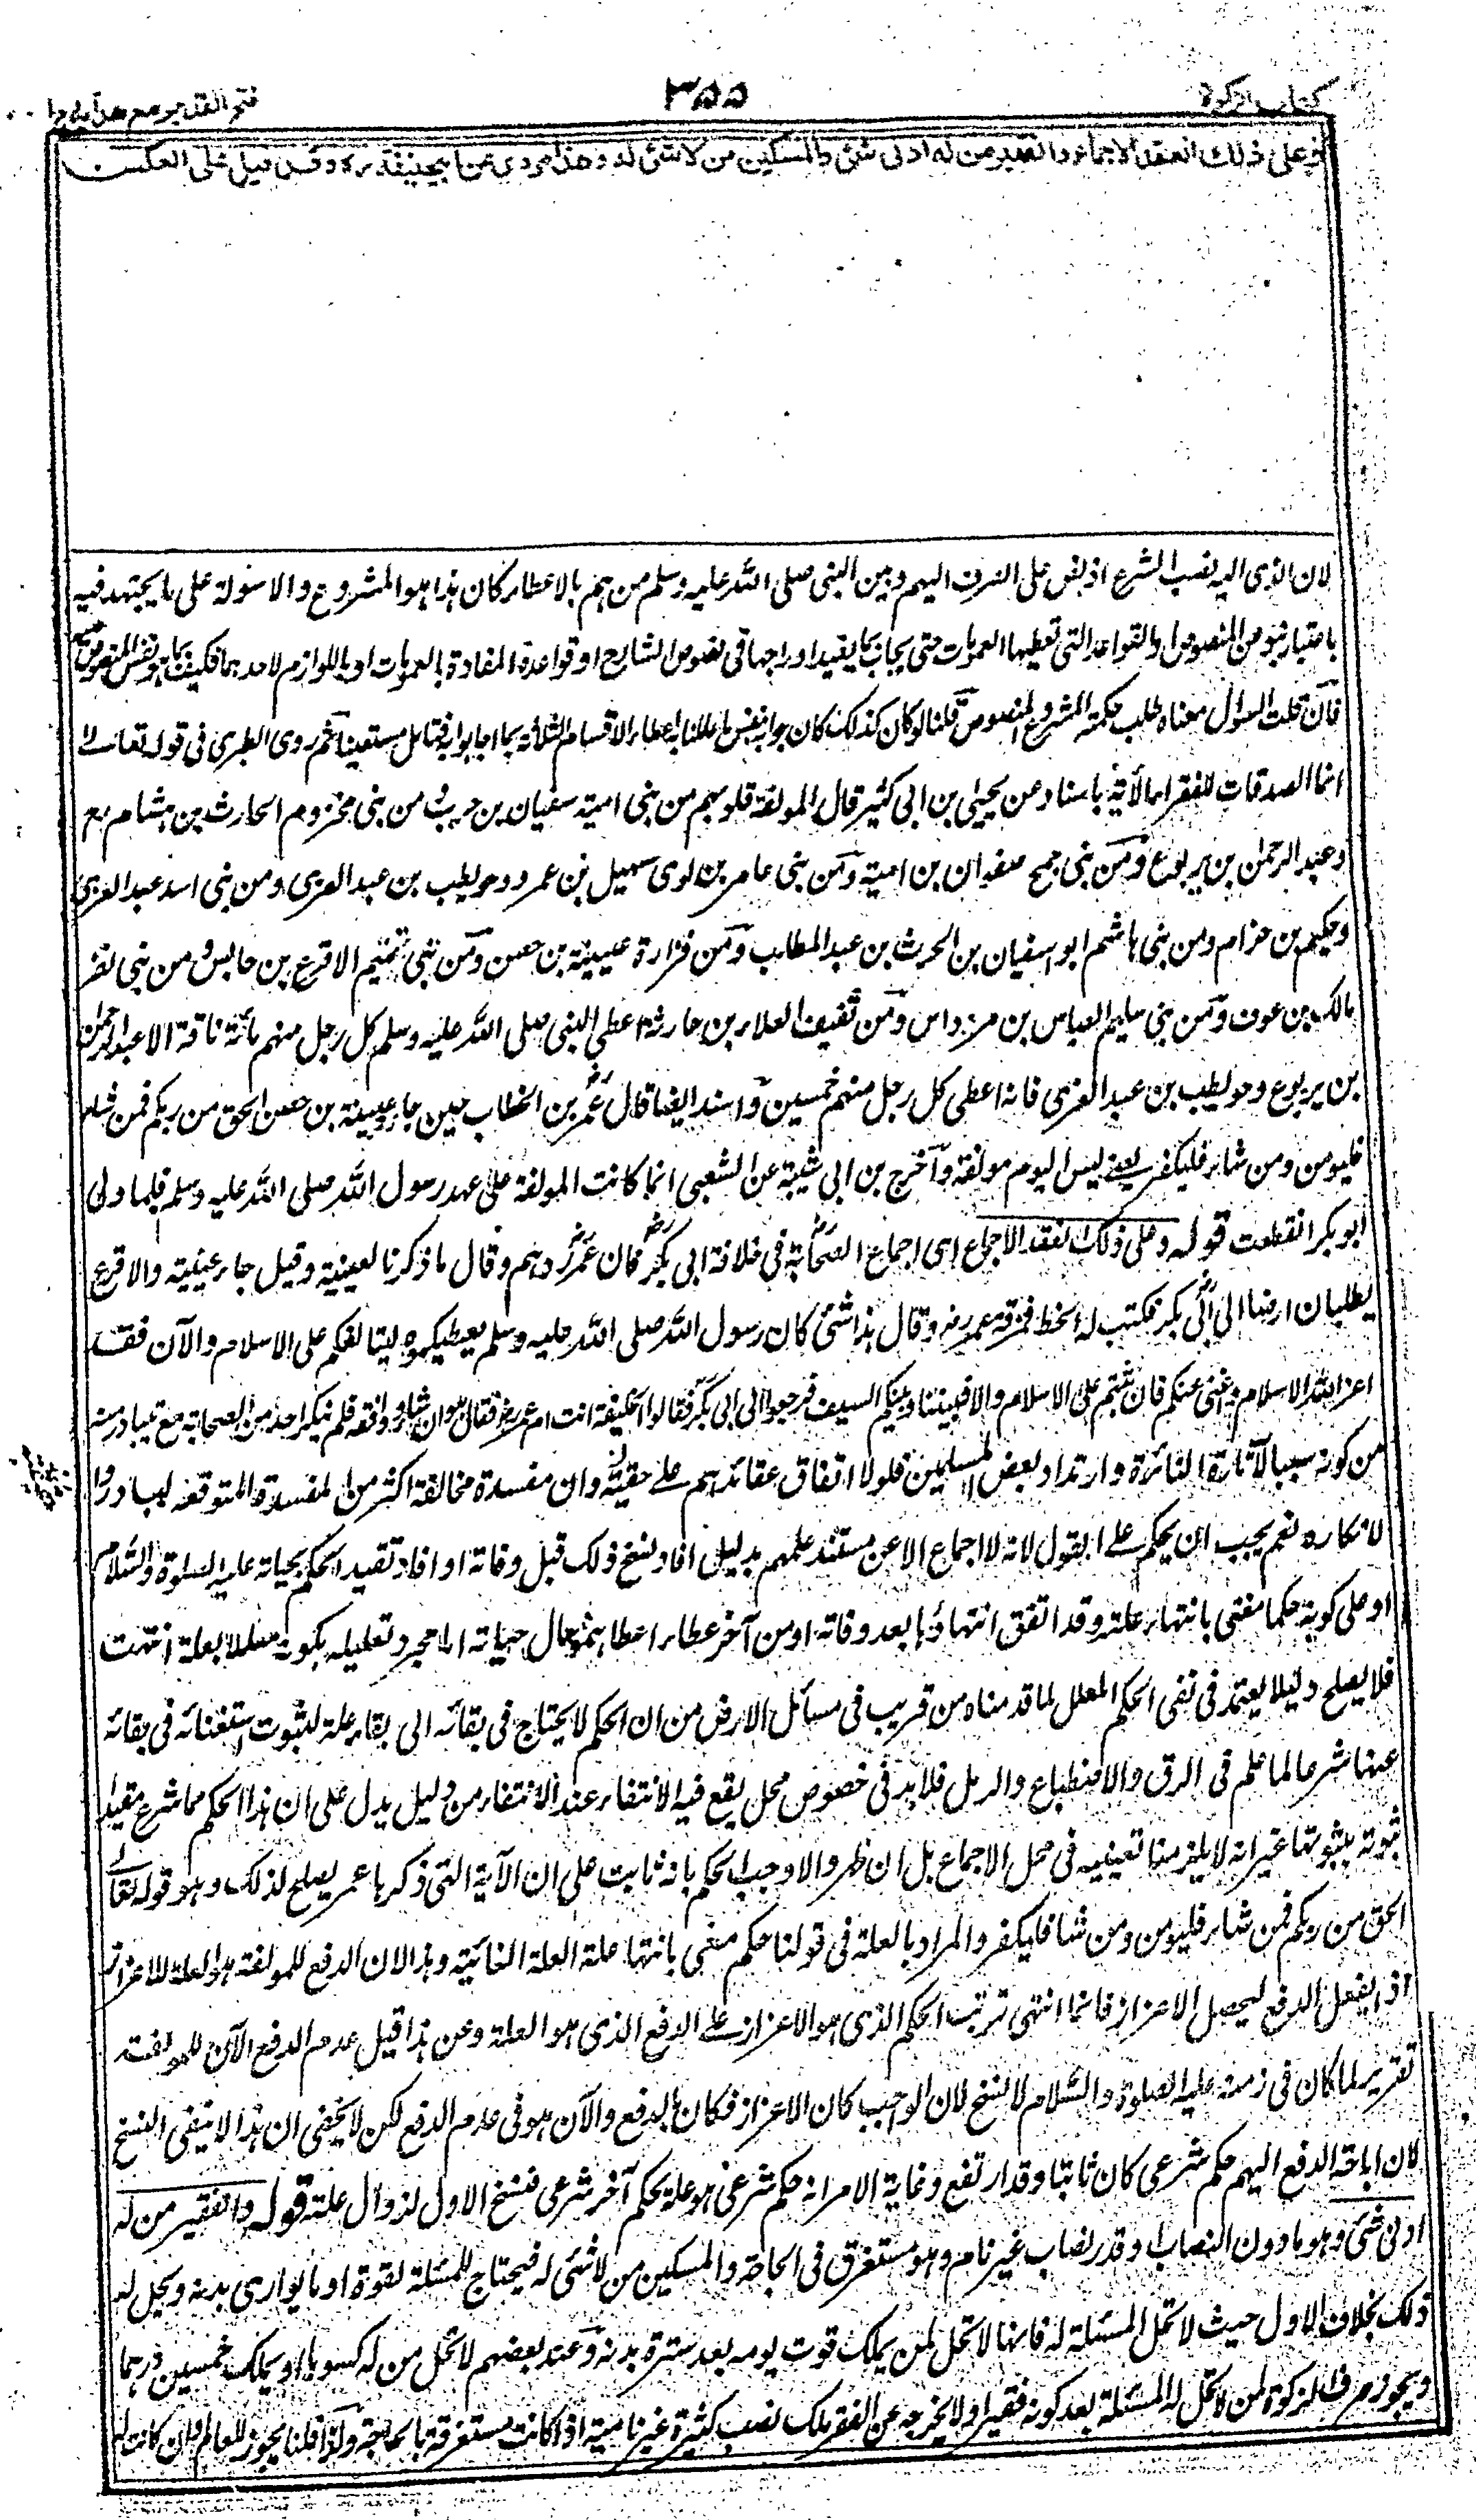 كتاب الزكوة
٣٥٥
فتح القدير مع هدايه
وعلى ذلك انعقد الاجماع والفقير من له ادنى شئ والمسكين من لا شئ له وهذا مروى عن ابيحنيفة ره وقد قيل على العكس
لان الذى اليه نصب الشرع اذ نص على الصرف اليهم وبين النبى صلى الله عليه وسلم من هم بالاعطاء كان هذا هو المشروع والاسولة على ما يجتهد فيه
باعتبار نبوه من المنصوص او القواعد التى تعطيها العمومات حتى يجاب بما يفيد ادراجها فى نصوص الشارع او قواعده المفادة بالعمومات او باللوازم لاحدهما فكيف بما هو نفس المنصوص
فان قلت السوال معناه طلب حكمة المشروع المنصوص قلنا لو كان كذلك كان جوابه نفس ما عللنا به اعطاء الاقسام الثلاثة بما اجابوا به فتامل مستعينا ثم روى الطبرى فى قوله تعالى
انما الصدقات للفقراء الآية باسناده عن يحيى بن ابى كثير قال المولفة قلوبهم من بنى امية سفيان بن حرب ومن بنى مخزوم الحارث بن هشام
وعبد الرحمن بن يربوع ومن بنى جمح صفوان بن امية ومن بنى عامر بن لوى سهيل بن عمرو وحويطب بن عبد العزى ومن بنى اسد عبد العزى
وحكيم بن حزام ومن بنى هاشم ابو سفيان بن الحرث بن عبد المطلب ومن فزارة عيينة بن حصن ومن بنى تميم الاقرع بن حابس ومن بنى نصر
مالك بن عوف ومن بنى سليم العباس بن مرداس ومن ثقيف العلاء بن حارثة اعطى النبى صلى الله عليه وسلم كل رجل منهم مائة ناقة الا عبد الرحمن
بن يربوع وحويطب بن عبد العزى فانه اعطى كل رجل منهم خمسين واسند ايضا قال عمر بن الخطاب حين جاء عيينة بن حصن الحق من ربكم فمن شاء
فليومن ومن شاء فليكفر يعنى ليس اليوم مولفة وآخرج بن ابى شيبة عن الشعبى انما كانت المولفة على عهد رسول الله صلى الله عليه وسلم فلما ولى
ابو بكر انقطعت قوله وعلى ذلك انعقد الاجماع اى اجماع الصحابة فى خلافة ابى بكر فان عمر ردهم وقال ما ذكرنا لعيينة وقيل جاء عيينة والاقرع
يطلبان ارضا الى ابى بكر فكتب له الخط فمزقه عمر رض وقال هذا شئ كان رسول الله صلى الله عليه وسلم يعطيكموه ليتالفكم على الاسلام والآن فقد
اعز الله الاسلام وغنى عنكم فان ثبتم على الاسلام والا فبيننا وبينكم السيف فرجعوا الى ابى بكر فقالوا الخليفة انت ام عمر رض فقال هو ان شاء ووافقه فلم ينكر احد من الصحابة مع ما يتبادر منه
من كونه سببا لآثارة النائرة وارتداد بعض المسلمين فلولا اتفاق عقائدهم على حقيته وان مفسدة مخالفته اكثر من المفسدة المتوقعة لبادروا
لانكاره نعم يجب ان يحكم على القول لانه لا اجماع الا عن مستند علمهم بدليل افاد نسخ ذلك قبل وفاته او افاد تقييد الحكم بحياته عليه الصلوة والسلام
او على كونه حكما مغيى بانتهاء علته وقد اتفق انتهاؤها بعد وفاته او من آخر عطاء اعطاهموه حال حياته اما مجرد تعليله بكونه معللا بعلة انتهت
فلا يصلح دليلا يعتمد فى نفى الحكم المعلل لما قدمناه من قريب فى مسائل الارض من ان الحكم لا يحتاج فى بقائه الى بقاء علته لثبوت استغنائه فى بقائه
عنها شرعا لما علم فى الرق والاضطباع والرمل فلا بد فى خصوص محل يقع فيه الانتفاء عند الانتفاء من دليل يدل على ان هذا الحكم مما شرع مقيدا
ثبوته بثبوتها غير انه لا يلزمنا تعيينه فى محل الاجماع بل ان ظهر والا وجب الحكم بانه ثابت على ان الآية التى ذكرها عمر يصلح لذلك وهو قوله تعالى
الحق من ربكم فمن شاء فليومن ومن شاء فليكفر والمراد بالعلة فى قولنا حكم مغيى بانتهاء علته العلة الغائية وهذا لان الدفع للمولفة هو العلة للاعزاز
اذ يفعل الدفع ليحصل الاعزاز فانما انتهى ترتب الحكم الذى هو الاعزاز على الدفع الذى هو العلة وعن هذا قيل عدم الدفع الآن للمولفة
تقرير لما كان فى زمنه عليه الصلوة والسلام لا نسخ لان الواجب كان الاعزاز فكان بالدفع والآن هو فى عدم الدفع لكن لا يخفى ان هذا لا ينفى النسخ
لان اباحة الدفع اليهم حكم شرعى كان ثابتا وقد ارتفع وغاية الامر انه حكم شرعى هو علة لحكم آخر شرعى فنسخ الاول لزوال علته قوله والفقير من له
ادنى شئ وهو ما دون النصاب او قدر نصاب غير نام وهو مستغرق فى الحاجة والمسكين من لا شئ له فيحتاج للمسئلة لقوته او ما يوارى بدنه ويحل له
ذلك بخلاف الاول حيث لا تحل المسئلة له فانها لا تحل لمن يملك قوت يومه بعد سترة بدنه وعند بعضهم لا تحل لمن كان كسوبا او يملك خمسين درهما
ويجوز صرف الزكوة لمن لا تحل له المسئلة بعد كونه فقيرا ولا يخرجه عن الفقر ملك نصب كثيرة غير نامية اذا كانت مستغرقة بالحاجة ولذا قلنا يجوز للعالم وان كانت له